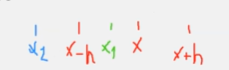 x₂ x-h x₁ x x+h